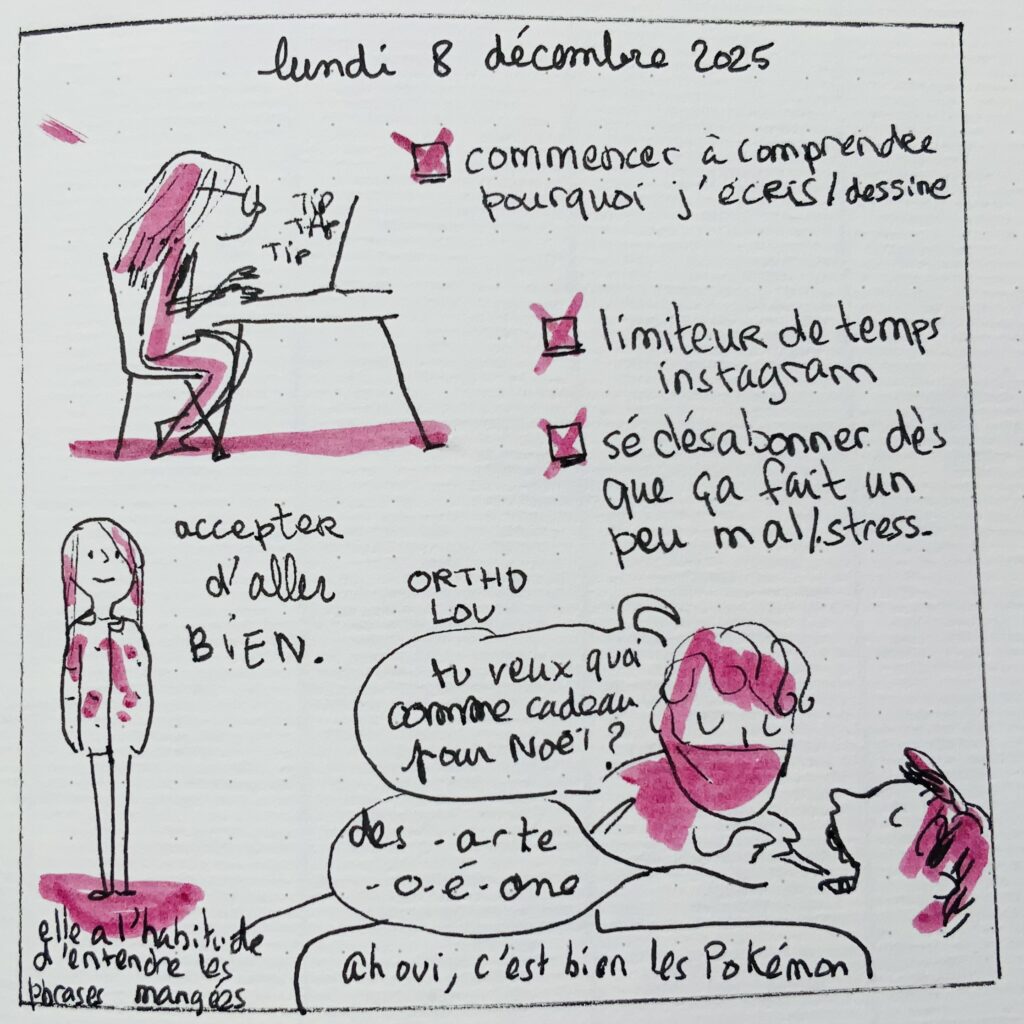 lundi 8 décembre 2025
commencer à comprendre
pourquoi j'écris/dessine
Tip
Tap
Tip
limiteur de temps
instagram
sé désabonner dès
que ça fait un
peu mal/.stress.
accepter
d'aller
BIEN.
ORTHO
LOU
tu veux quoi
comme cadeau
pour Noël ?
des -arte
-o-é-one
elle a l'habitude
d'entendre les
phrases mangées
ah oui, c'est bien les Pokémon